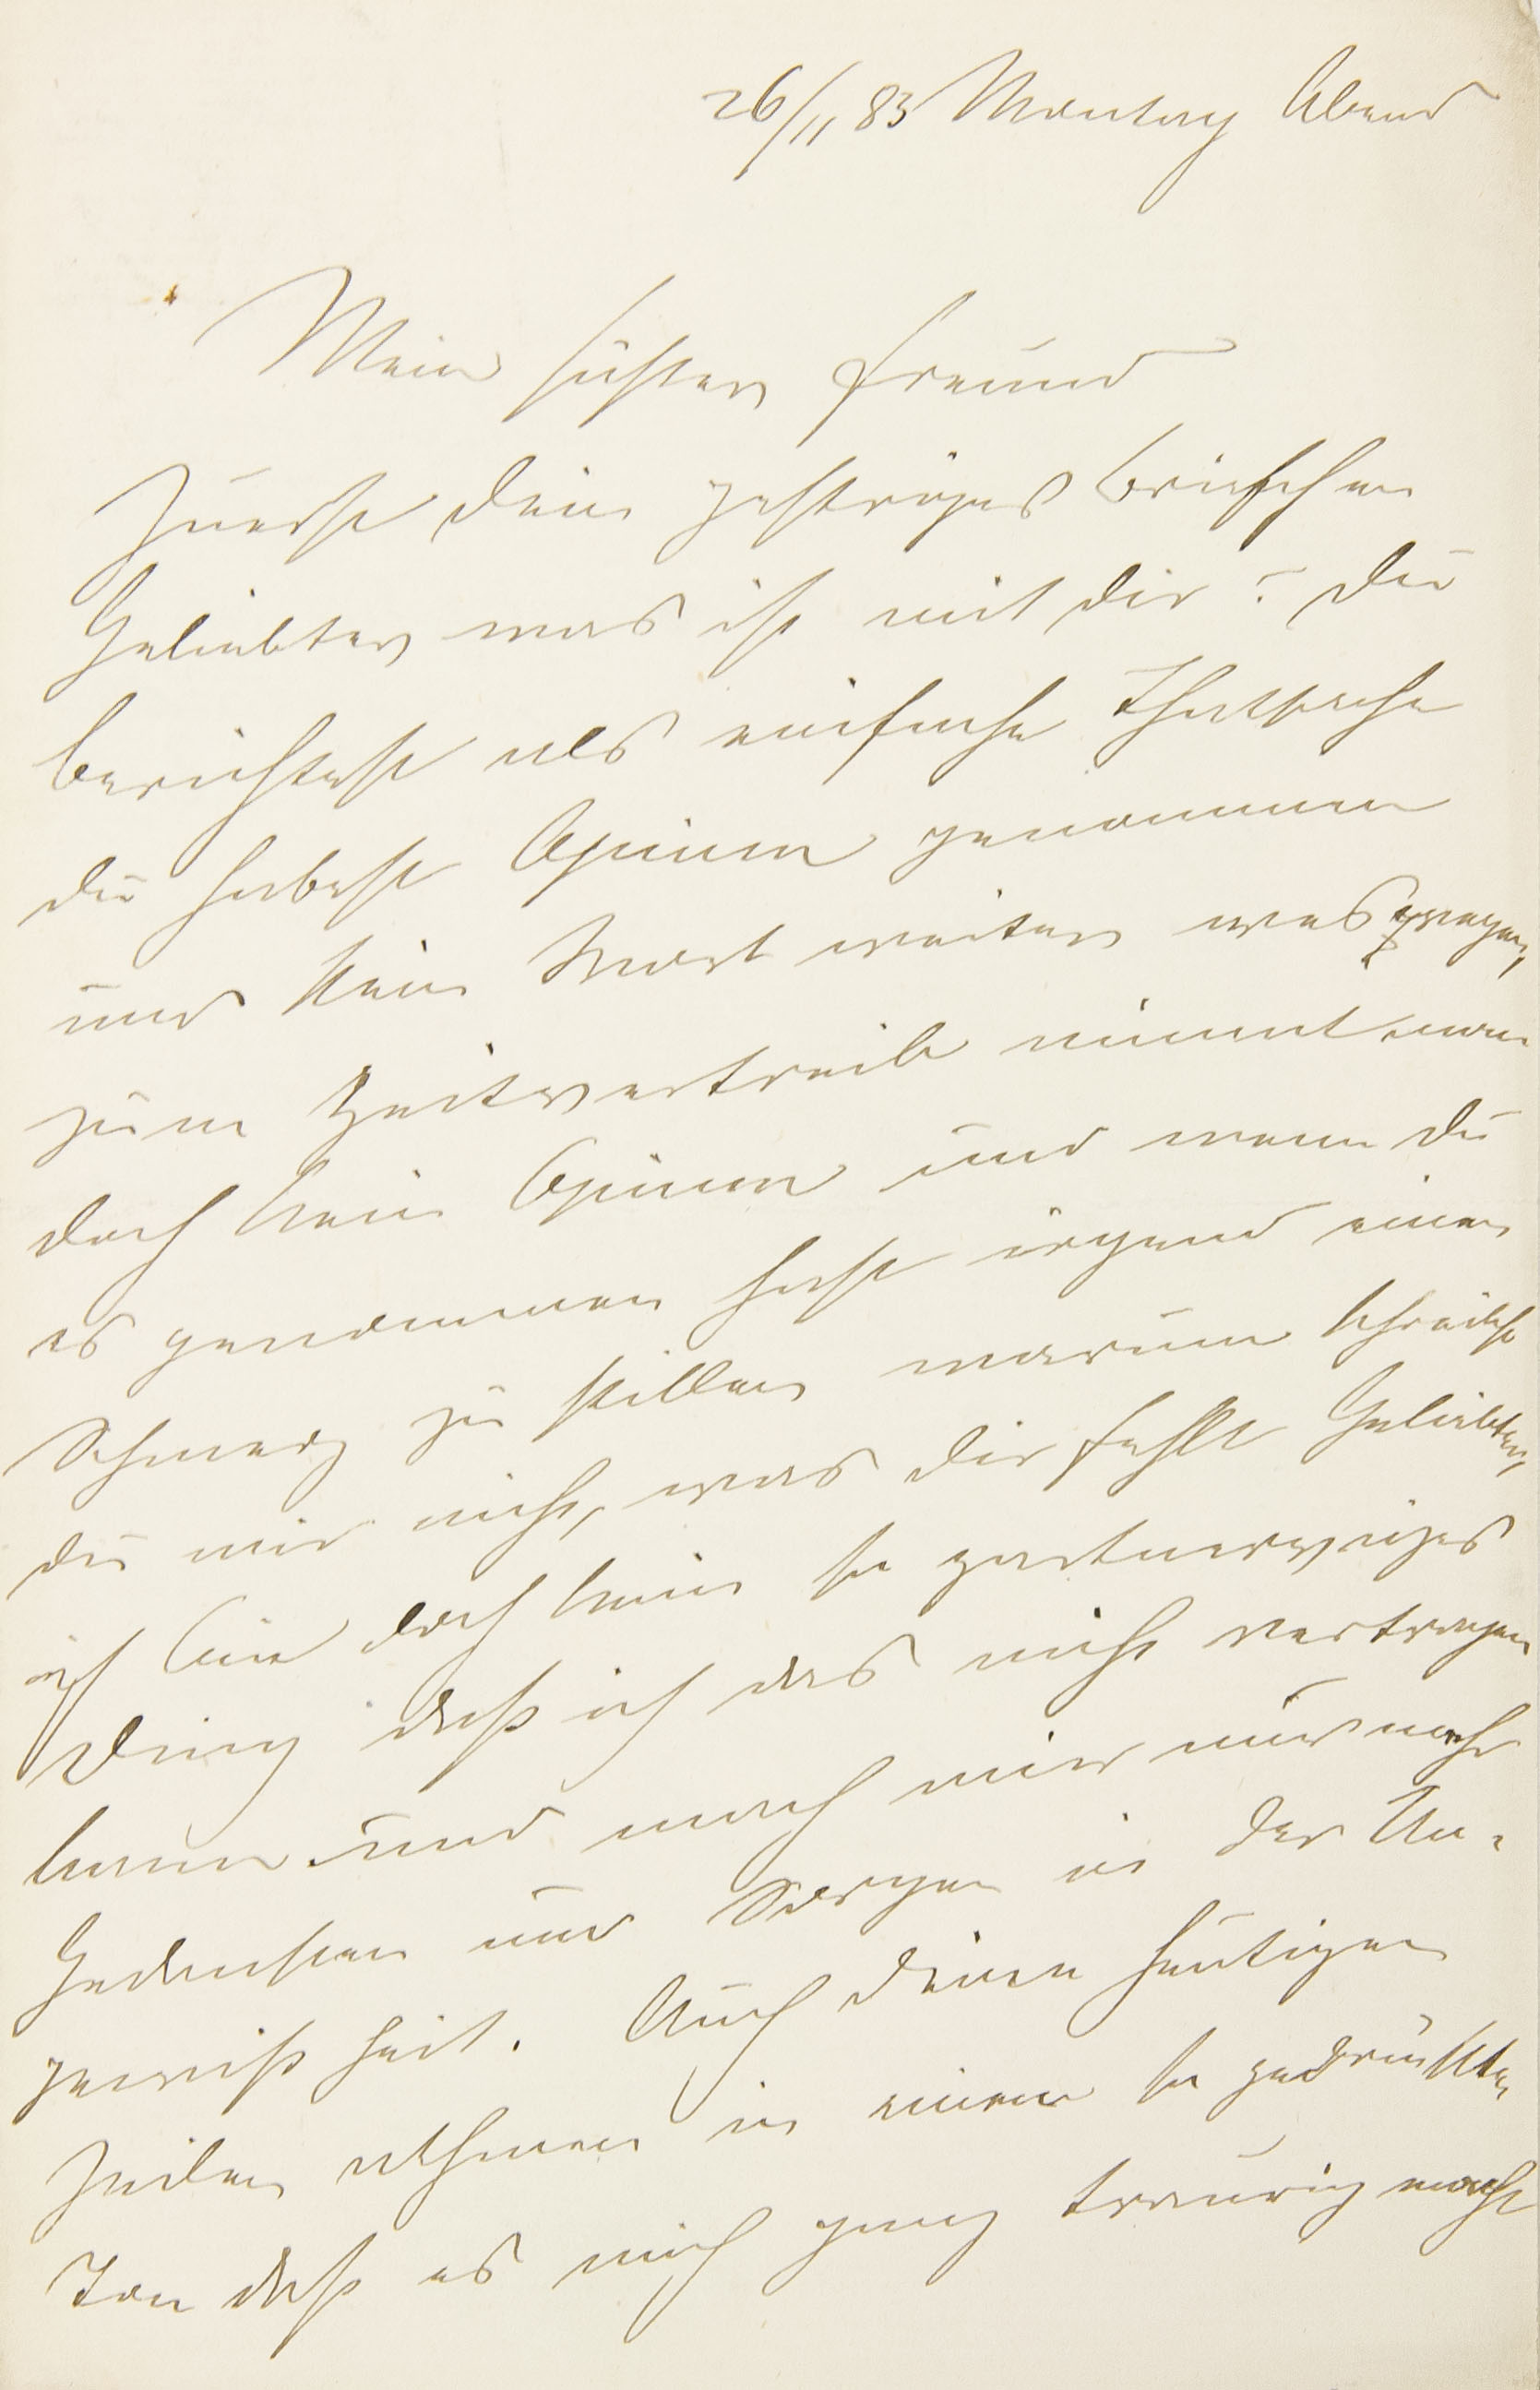 26/11 83 Montag Abend
Mein süßer Freund
Zuerst dein gestriges Briefchen
Geliebter was ist mit dir? Du
berichtest als einfache Thatsache
du habest Opium genommen
und kein Wort weiter weswegen,
zum Zeitvertreib nimmt man
doch kein Opium und wenn du
es genommen hast irgend einen
Schmerz zu stillen warum schreibst
du mir nicht, was dir fehlt Geliebter,
ich bin doch kein so zartnerviges
Ding daß ich das nicht vertragen
kann und mach mir nur mehr
Gedanken und Sorgen in der Un-
gewißheit. Auch deine heutigen
Zeilen athmen in einem so gedrückten
Ton daß es mich ganz traurig macht